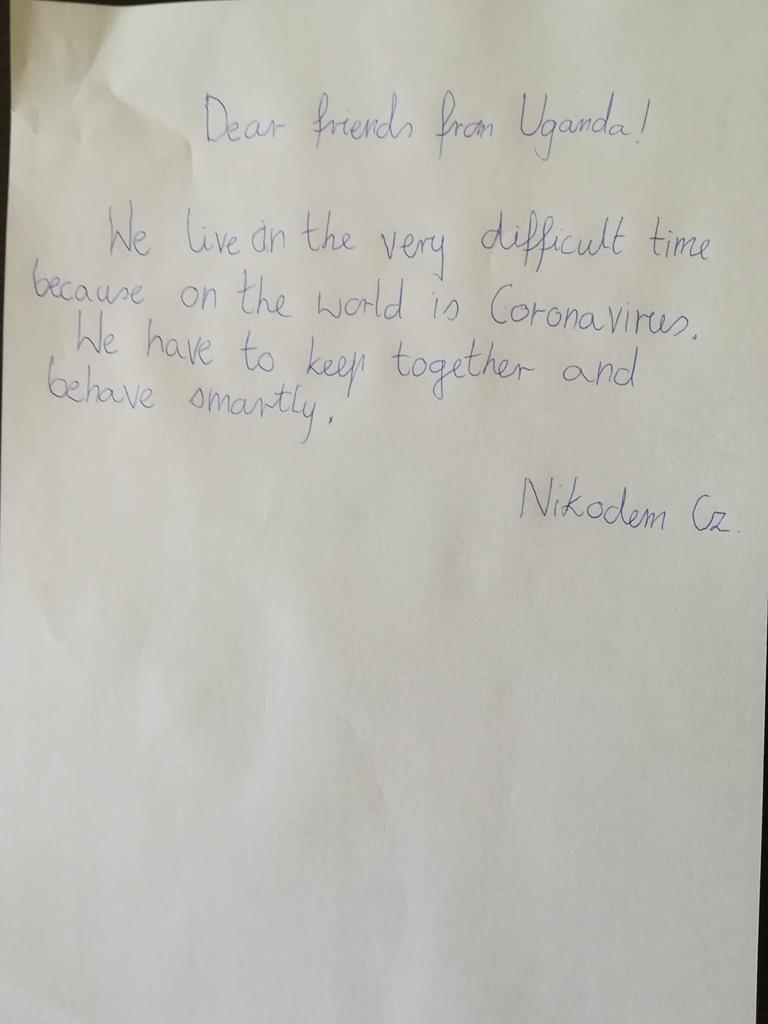 Dear friends from Uganda!
We live in the very difficult time
because on the world is Coronavirus.
We have to keep together and
behave smartly.
Nikodem Cz.